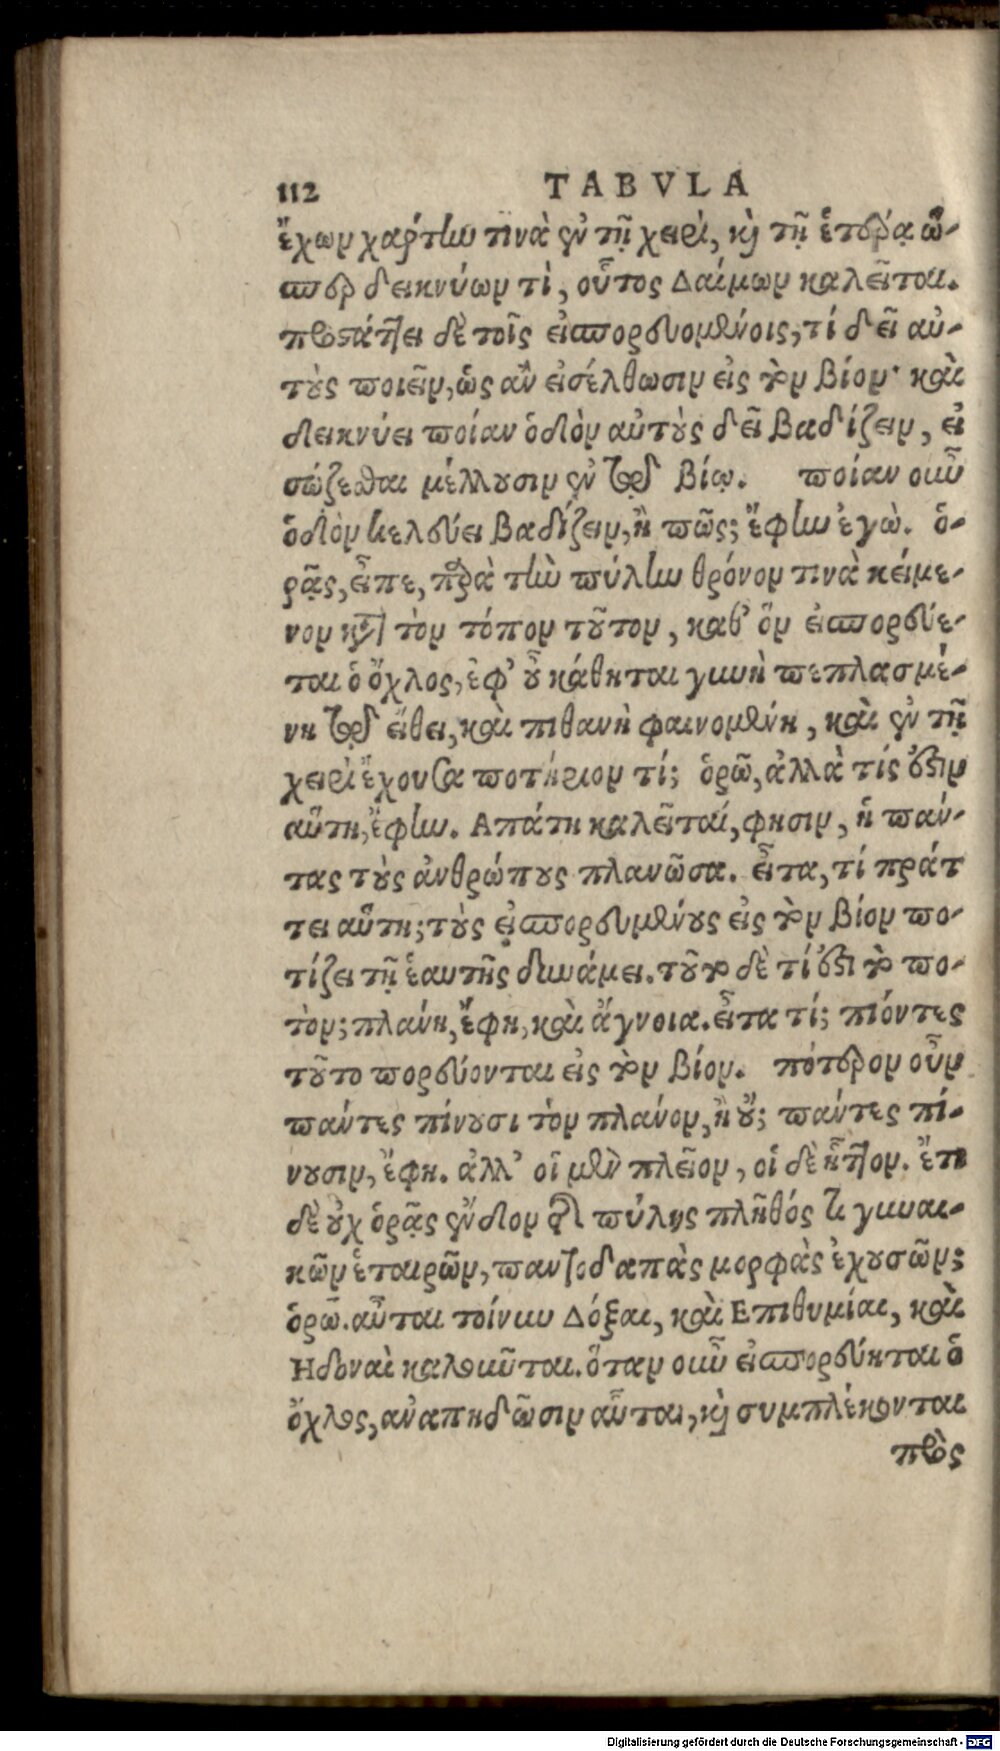 112 TABVLA
ἔχων χάρτην τινὰ ἐν τῇ χειρὶ, καὶ τῇ ἑτέρᾳ ὥ-
σπερ δεικνύων τὶ, οὗτος Δαίμων καλεῖται.
προστάττει δὲ τοῖς εἰσπορευομένοις, τί δεῖ αὐ-
τοὺς ποιεῖν, ὡς ἂν εἰσέλθωσιν εἰς τὸν βίον· καὶ
δεικνύει ποίαν ὁδὸν αὐτοὺς δεῖ βαδίζειν, εἰ
σώζεσθαι μέλλουσιν ἐν τῷ βίῳ. ποίαν οὖν
ὁδὸν κελεύει βαδίζειν, ἢ πῶς; ἔφην ἐγὼ. ὁ-
ρᾷς, εἶπε, παρὰ τὴν πύλην θρόνον τινὰ κείμε-
νον κατὰ τὸν τόπον τοῦτον, καθ’ ὃν εἰσπορεύε-
ται ὁ ὄχλος, ἐφ’ οὗ κάθηται γυνὴ πεπλασμέ-
νη τῷ εἴθει, καὶ πιθανὴ φαινομένη, καὶ ἐν τῇ
χειρὶ ἔχουσα ποτήριον τί; ὁρῶ, ἀλλὰ τίς ἐστιν
αὕτη, ἔφην. Απάτη καλεῖται, φησιν, ἡ πάν-
τας τοὺς ἀνθρώπους πλανῶσα. εἶτα, τί πράτ
τει αὕτη; τοὺς εἰσπορευομένους εἰς τὸν βίον πο-
τίζει τῇ ἑαυτῆς δυνάμει. τοῦτο δὲ τί ἐστι τὸ πο-
τὸν; πλάνη, ἔφη, καὶ ἄγνοια. εἶτα τί; πιόντες
τοῦτο πορεύονται εἰς τὸν βίον. πότερον οὖν
πάντες πίνουσι τὸν πλάνον, ἢ οὔ; πάντες πί-
νουσιν, ἔφη. ἀλλ’ οἱ μὲν πλεῖον, οἱ δὲ ἧττον. ἔτι
δὲ οὐχ ὁρᾷς ἔνδον τῆς πύλης πλῆθός τι γυναι-
κῶν ἑταιρῶν, παντοδαπὰς μορφὰς ἐχουσῶν;
ὁρῶ. αὗται τοίνυν Δόξαι, καὶ Επιθυμίαι, καὶ
Ηδοναὶ καλοῦνται. ὅταν οὖν εἰσπορεύηται ὁ
ὄχλος, ἀναπηδῶσιν αὗται, καὶ συμπλέκονται
πρὸς
Digitalisierung gefördert durch die Deutsche Forschungsgemeinschaft - DFG